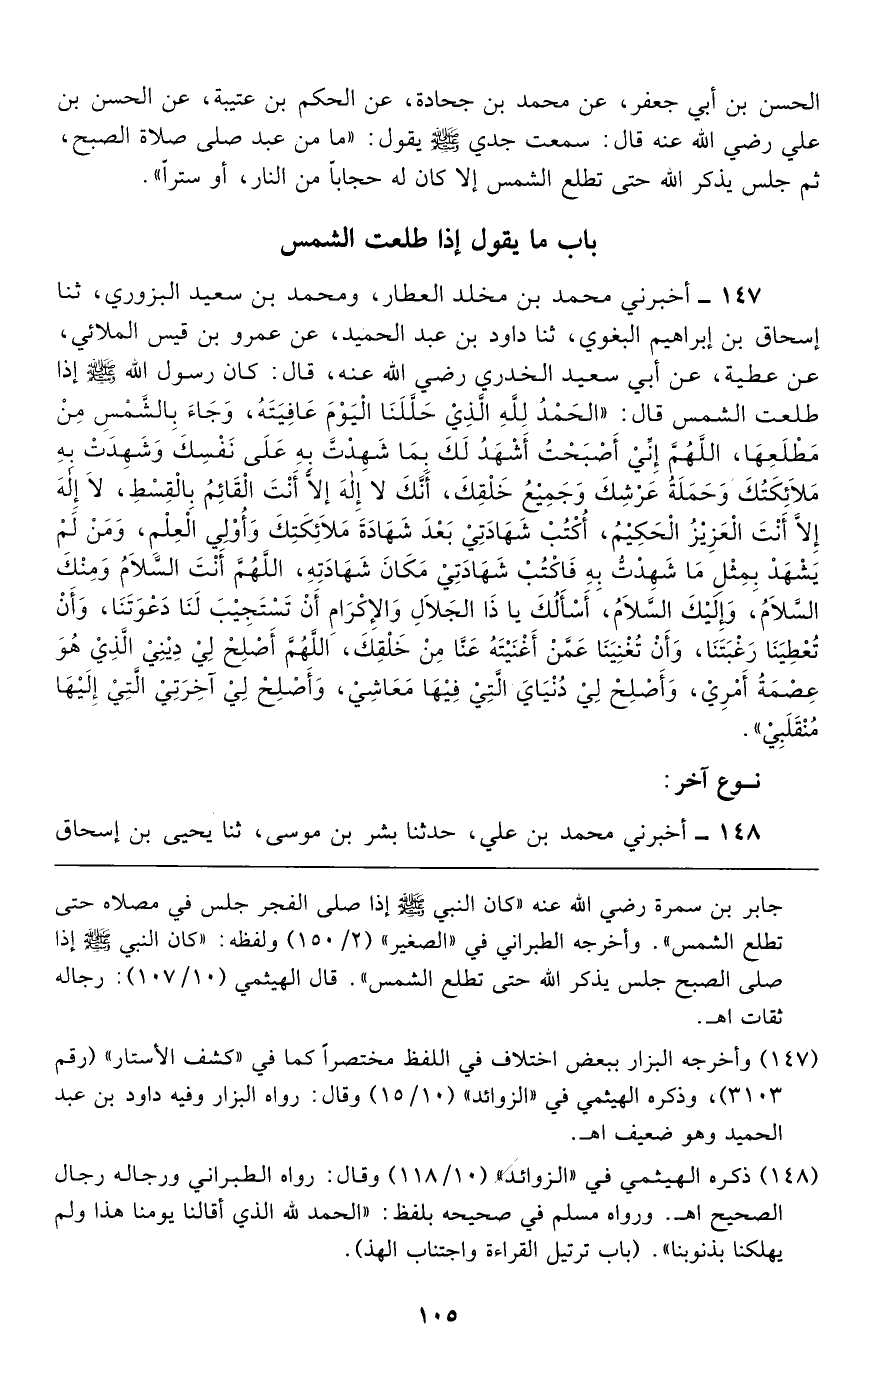 الحسن بن أبي جعفر، عن محمد بن جحادة، عن الحكم بن عتيبة، عن الحسن بن
علي رضي الله عنه قال: سمعت جدي ﷺ يقول: «ما من عبد صلى صلاة الصبح،
ثم جلس يذكر الله حتى تطلع الشمس إلا كان له حجاباً من النار، أو ستراً».
باب ما يقول إذا طلعت الشمس
١٤٧ ـ أخبرني محمد بن مخلد العطار، ومحمد بن سعيد البزوري، ثنا
إسحاق بن إبراهيم البغوي، ثنا داود بن عبد الحميد، عن عمرو بن قيس الملائي،
عن عطية، عن أبي سعيد الخدري رضي الله عنه، قال: كان رسول الله ﷺ إذا
طلعت الشمس قال: «الحَمْدُ لِلَّهِ الَّذِيْ حَلَّلَنَا الْيَوْمَ عَافِيَتَهُ، وَجَاءَ بِالشَّمْسِ مِنْ
مَطْلَعِهَا، اللَّهُمَّ إِنِّيْ أَصْبَحْتُ أَشْهَدُ لَكَ بِمَا شَهِدْتَّ بِهِ عَلَى نَفْسِكَ وَشَهِدَتْ بِهِ
مَلاَئِكَتُكَ وَحَمَلَةُ عَرْشِكَ وَجَمِيْعُ خَلْقِكَ، أَنَّكَ لا إِلٰهَ إلاَّ أَنْتَ الْقَائِمُ بِالْقِسْطِ، لاَ إِلَهَ
إلاَّ أَنْتَ الْعَزِيْزُ الْحَكِيْمُ، أُكْتُبْ شَهَادَتِيْ بَعْدَ شَهَادَةَ مَلاَئِكَتِكَ وَأُوْلِي الْعِلْمِ، وَمَنْ لَمْ
يَشْهَدْ بِمِثْلِ مَا شَهِدْتُّ بِهِ فَاكْتُبْ شَهَادَتِيْ مَكَانَ شَهَادَتِهِ، اللَّهُمَّ أَنْتَ السَّلاَمُ وَمِنْكَ
السَّلاَمُ، وَإِلَيْكَ السَّلاَمُ، أَسْأَلُكَ يا ذَا الجَلاَلِ وَالإِكْرَامِ أَنْ تَسْتَجِيْبَ لَنَا دَعْوَتَنَا، وَأَنْ
تُعْطِيَنَا رَغْبَتَنَا، وَأَنْ تُغْنِيَنَا عَمَّنْ أَغْنَيْتَهُ عَنَّا مِنْ خَلْقِكَ، اللَّهُمَّ أَصْلِحْ لِي دِيْنِيْ الَّذِيْ هُوَ
عِصْمَةُ أَمْرِيْ، وَأَصْلِحْ لِيْ دُنْيَايَ الَّتِيْ فِيْهَا مَعَاشِيْ، وَأَصْلِحْ لِيْ آخِرَتِيْ الَّتِيْ إِلَيْهَا
مُنْقَلَبِيْ».
نـوع آخر:
١٤٨ ـ أخبرني محمد بن علي، حدثنا بشر بن موسى، ثنا يحيى بن إسحاق
جابر بن سمرة رضي الله عنه «كان النبي ﷺ إذا صلى الفجر جلس في مصلاه حتى
تطلع الشمس». وأخرجه الطبراني في «الصغير» (٢/ ١٥٠) ولفظه: «كان النبي ﷺ إذا
صلى الصبح جلس يذكر الله حتى تطلع الشمس». قال الهيثمي (١٠/ ١٠٧): رجاله
ثقات اهـ.
(١٤٧) وأخرجه البزار ببعض اختلاف في اللفظ مختصراً كما في «كشف الأستار» (رقم
٣١٠٣)، وذكره الهيثمي في «الزوائد» (١٠/ ١٥) وقال: رواه البزار وفيه داود بن عبد
الحميد وهو ضعيف اهـ.
(١٤٨) ذكره الهيثمي في «الزوائد» (١٠/ ١١٨) وقال: رواه الطبراني ورجاله رجال
الصحيح اهـ. ورواه مسلم في صحيحه بلفظ: «الحمد لله الذي أقالنا يومنا هذا ولم
يهلكنا بذنوبنا». (باب ترتيل القراءة واجتناب الهذ).
١٠٥